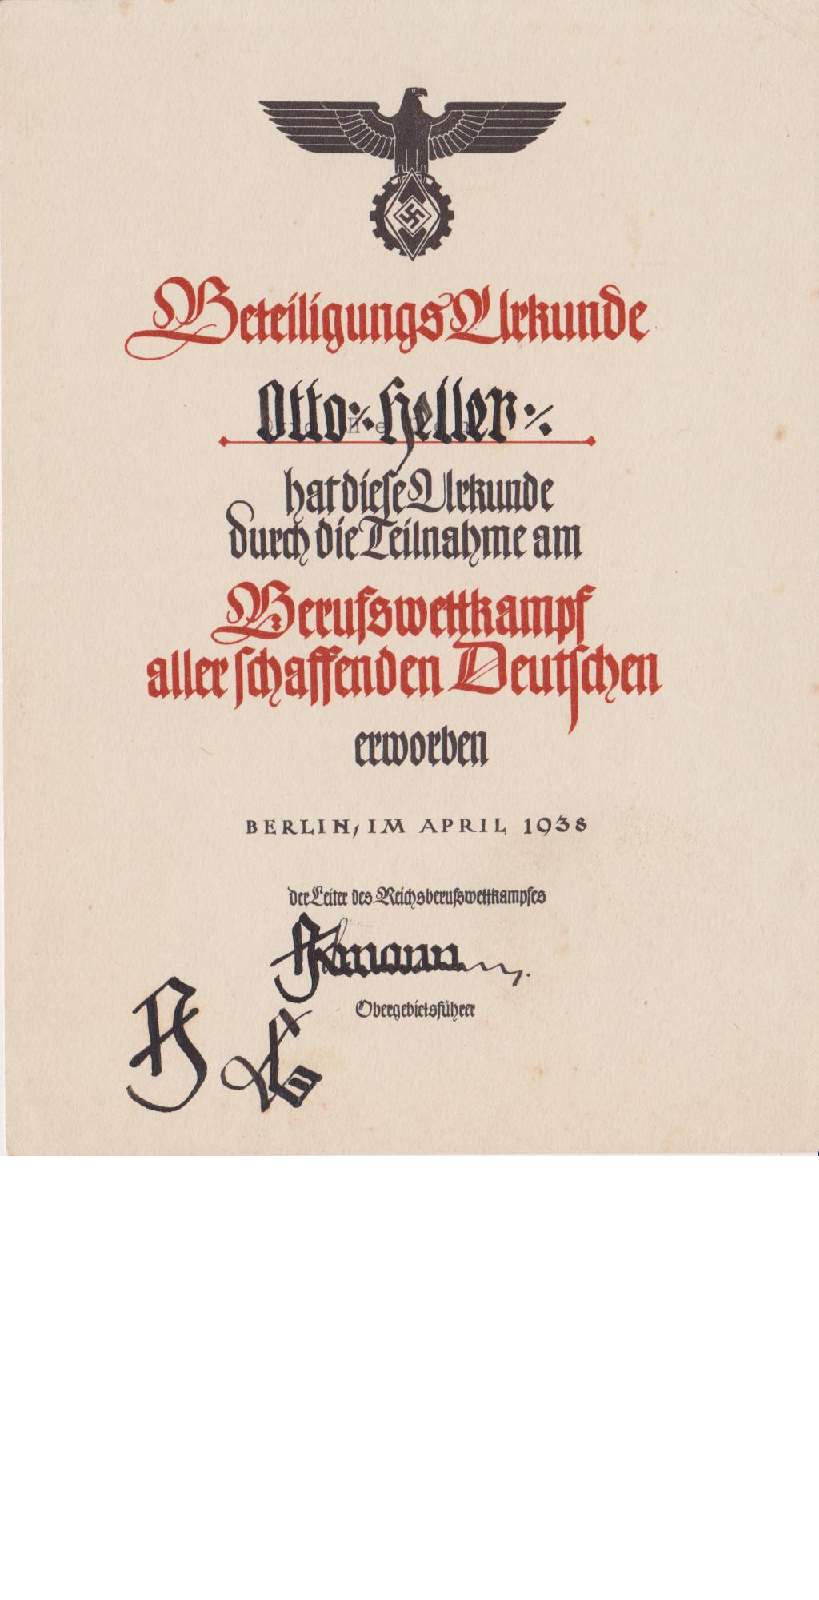 Beteiligungs Urkunde
Otto Heller
hat diese Urkunde
durch die Teilnahme am
Berufswettkampf
aller schaffenden Deutschen
erworben
BERLIN, IM APRIL 1938
der Leiter des Reichsberufswettkampfes
Axmann
Obergebietsführer